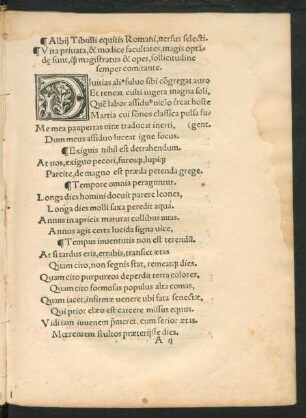 ¶Albij Tibulli equitis Romani, versus selecti.
¶Vita priuata, & modice facultates, magis optā-
de sunt, q̄ magistratus & opes, sollicitudine
semper comitante.
DIuitias aliꝰ fuluo sibi cōgregat auro
Et teneat culti iugera magna soli,
Quē labor assiduꝰ vicīo terreat hoste
Martia cui sōnos classica pulsa fu-
Me mea paupertas vitæ traducat inerti, (gent.
Dum meus assiduo luceat igne focus.
¶Exiguis nihil est detrahendum.
At vos, exiguo pecori, furesq;, lupiq;
Parcite, de magno est præda petenda grege.
¶Tempore omnia peraguntur.
Longa dies homini docuit parere leones,
Longa dies molli saxa peredit aqua.
Annus in apricis maturat collibus uuas,
Annus agit certa lucida signa vice,
¶Tempus iuuentutis non est terendū.
At si tardus eris, errabis, transiet ætas
Quam cito, non segnis stat, remeatq; dies.
Quam cito purpureos deperdit terra colores,
Quam cito formosas populus alta comas,
Quam iacet, infirmæ venere ubi fata senectæ,
Qui prior elæo est carcere missus equus.
Vidi iam iuuenem p̄meret, cum serior ætas.
Mœrentem stultos præterijsse dies.
A ij